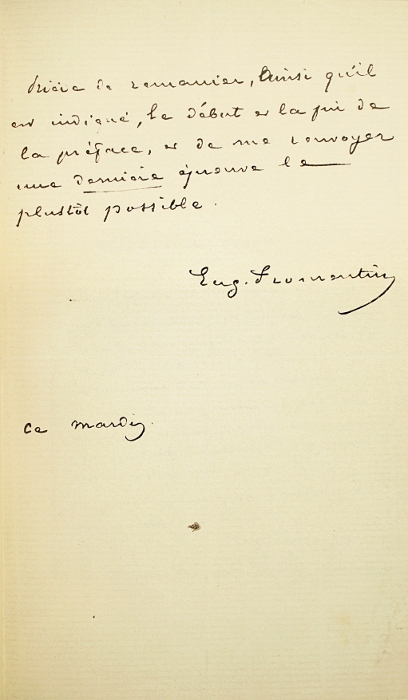 Prière de remanier, ainsi qu'il
est indiqué, le début et la fin de
la préface, et de me renvoyer
une dernière épreuve le
plustôt possible.
Eug. Fromentin
ce mardi